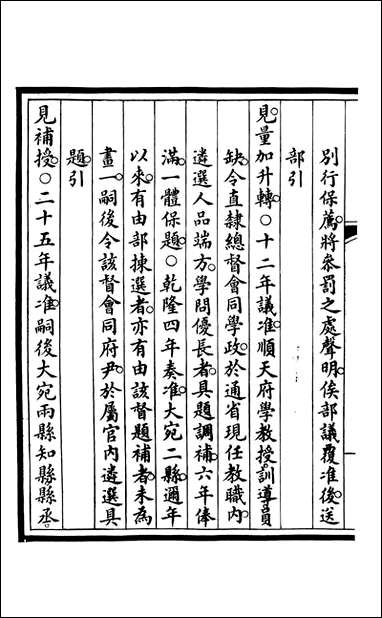 別行保薦。將參罰之處聲明。俟部議覆准後。送
部引
見。量加升轉。○十二年議准。順天府學教授訓導員
缺。令直隸總督會同學政。於通省現任教職內。
遴選人品端方。學問優長者。具題調補。六年俸
滿。一體保題。○乾隆四年奏准。大宛二縣。邇年
以來。有由部揀選者。亦有由該督題補者。未爲
畫一。嗣後令該督會同府尹。於屬官內遴選具
題。引
見補授。○二十五年議准。嗣後大宛兩縣知縣縣丞。